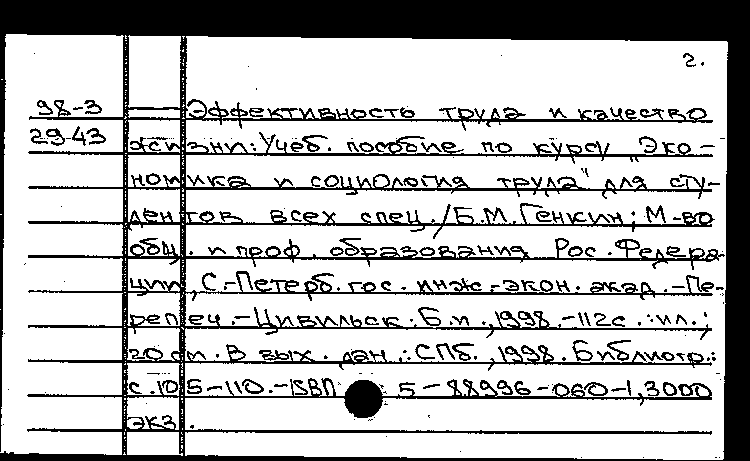 2.
98-3 — Эффективность труда и качество
2943 жизни: Учеб. пособие по курсу „Эко-
номика и социология труда" для сту-
дентов всех спец./Б.М.Генкин; М-во
общ. и проф. образования Рос. Федера-
ции, С.-Петерб. гос. инж.-экон. акад.-Пе-
репеч.-Цивильск: Б.и., 1998.-112с.:ил.;
20см. В вых. дан.: СПб., 1998. Библиогр.:
с.105-110.-ISBN 5-88996-060-1, 3000
экз.